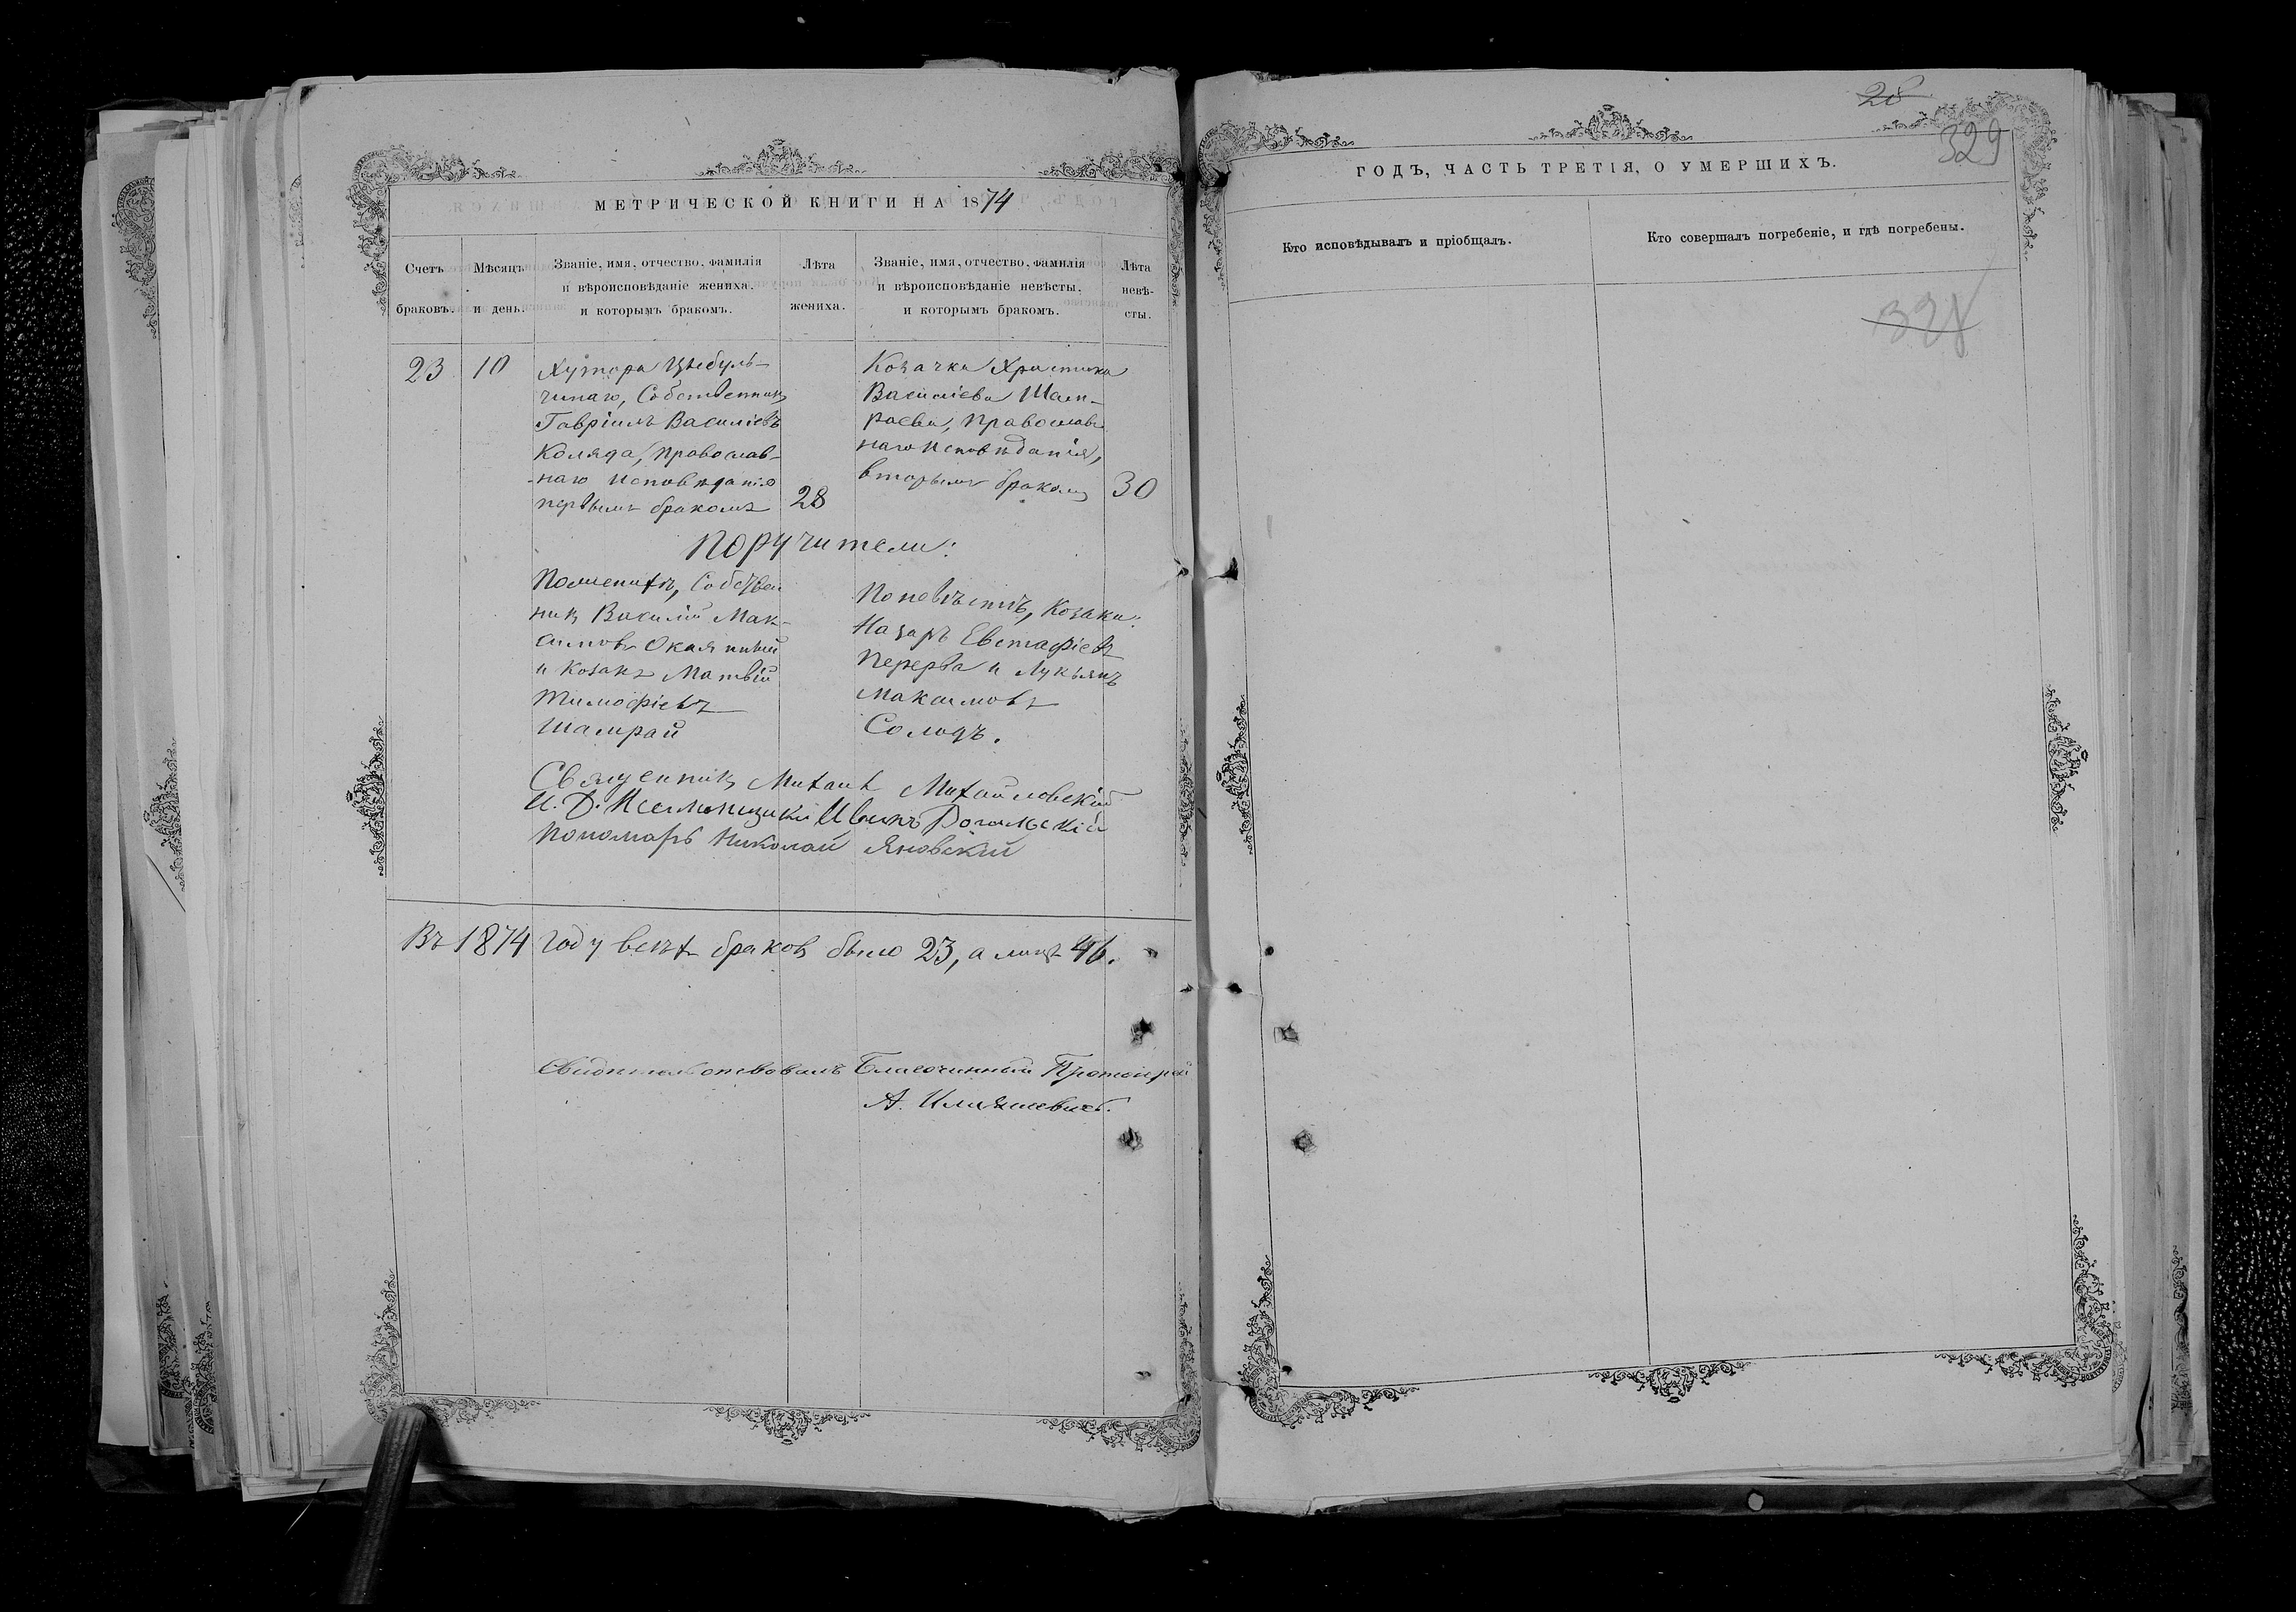 МЕТРИЧЕСКОЙ КНИГИ НА 1874
Счетъ браковъ.
Мѣсяцъ и день.
Званіе, имя, отчество, фамилія
и вѣроисповѣданіе жениха.
и которымъ бракомъ.
Лѣта
жениха.
Званіе, имя, отчество, фамилія
и вѣроисповѣданіе невѣсты,
и которымъ бракомъ.
Лѣта
невѣ-
сты.
23
10
Хутора Цыбуль-
Собственникъ
Гавріилъ Василіевъ
Коляда, Православ-
наго Исповѣданія
первымъ бракомъ
28
Козачка Христина
Василіева Шам-
раева, Православ
наго Исповѣданія,
вторымъ бракомъ
30
Поручители:
По женихѣ, Собствен
никъ Василій Мак-
симовъ Окаянный
и Козакъ Матвій
Тимофіевъ
Шамрай
По невѣстѣ, Козаки:
Назаръ Евстафіевъ
Перерва и Лукьянъ
Максимовъ
Солодъ.
Священникъ Михаилъ Михайловскій
И. Д. Псаломщика Иванъ Рогальскій
Пономарь Николай Яновскій
Въ 1874 году всѣхъ браковъ было 23, а лицъ 46.
Свидѣтельствовалъ Благочинный Протоіерей
А.
28
329
ГОДЪ, ЧАСТЬ ТРЕТІЯ, О УМЕРШИХЪ.
Кто исповѣдывалъ и пріобщалъ.
Кто совершалъ погребеніе, и гдѣ погребены.
328